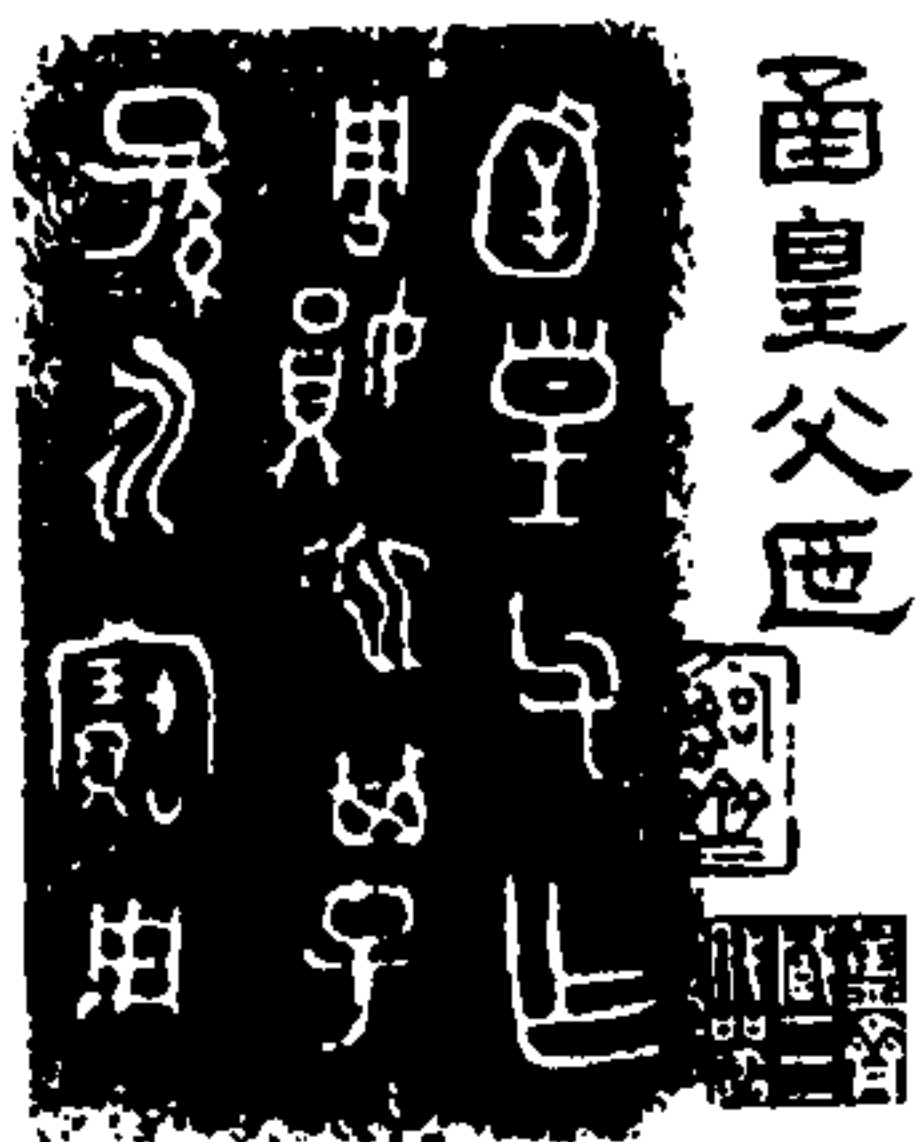 圅皇父匜
圅皇父乍
周也其子
孫永寶用